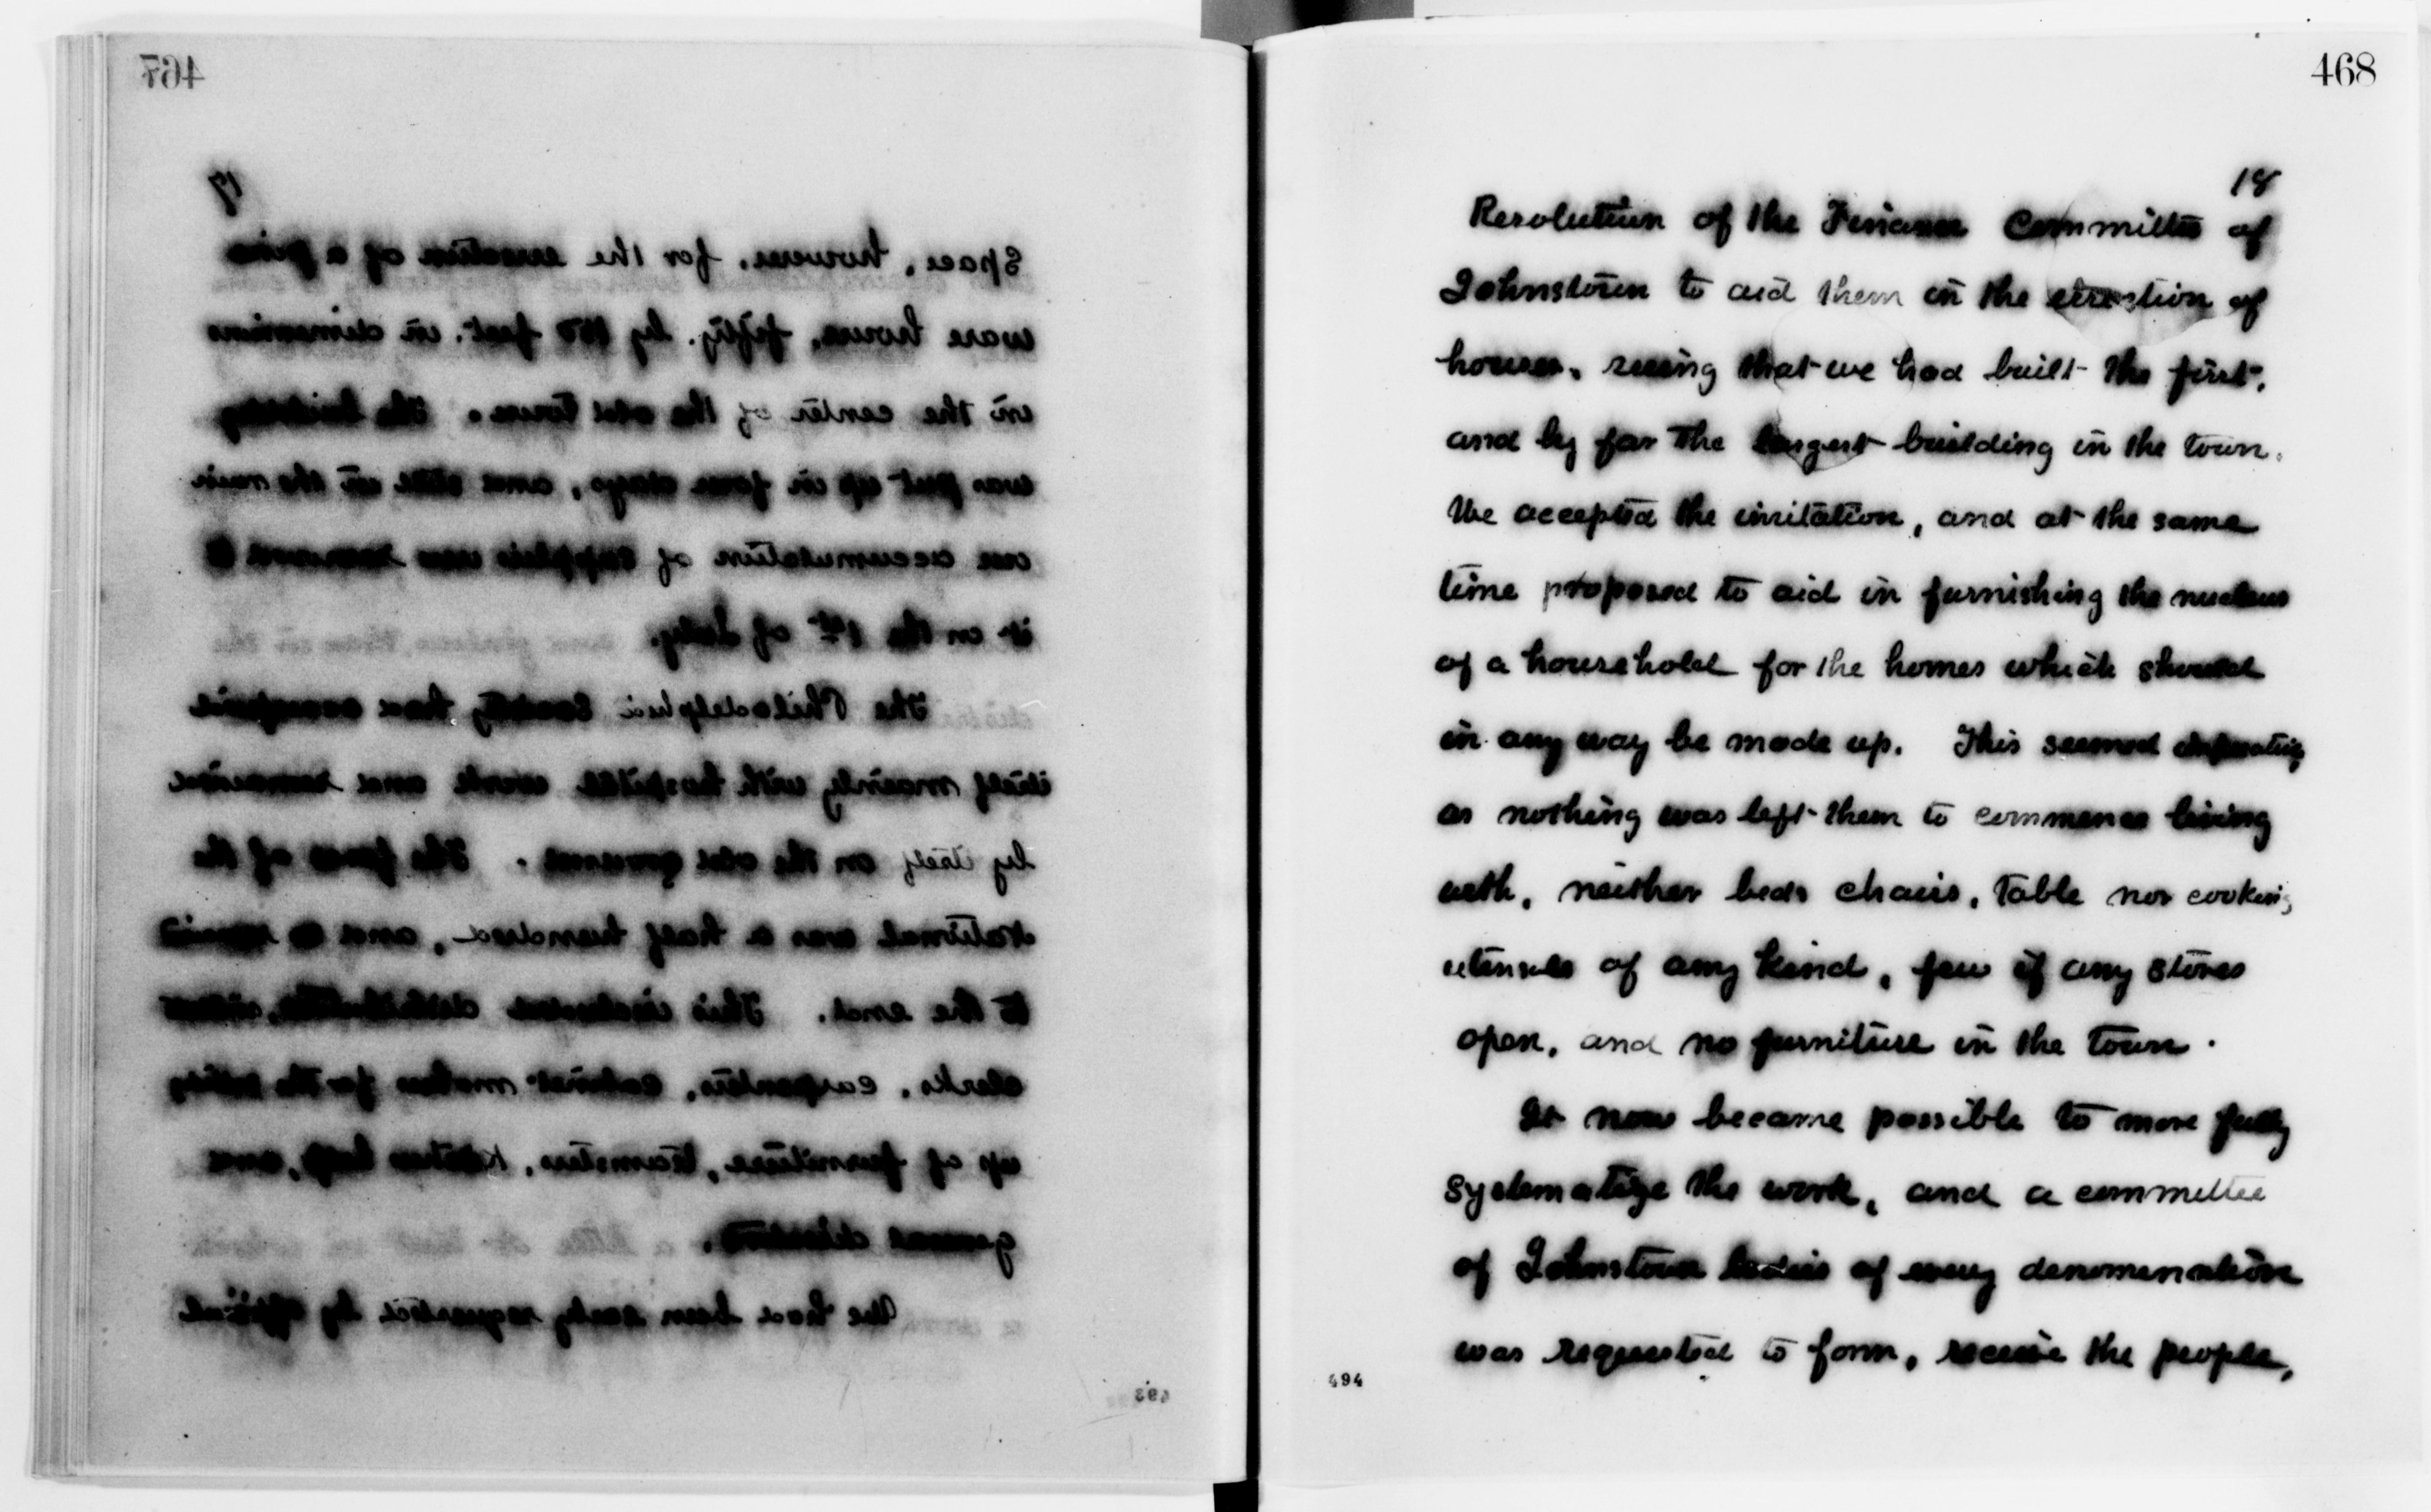 467
17
Space, however, for the erection of a
ware house, fifty. by 150 feet. in dimensions
in the center of the old town. The building
was put up in four days, and still in the rain
our accumulation of supplies was removed to
it on the 1st of July.
The Philadelphia Society had occupied
itself mainly with hospital work and
by itself on the old ground. The force of the
National was a half hundred, and so
to the end. This included
clerks, carpenters, cabinet makers for the
up of furniture, teamsters, Kitchen help, and
general
We had been early requested by official
493
468
18
Resolution of the Finance Committee of
Johnstown to aid them in the erection of
houses, seeing that we had built the first,
and by far the largest building in the town.
We accepted the invitation, and at the same
time proposed to aid in furnishing the nucleus
of a household for the homes which should
in any way be made up. This seemed imperative,
as nothing was left them to commence living
with, neither beds chairs, table nor cooking
utensils of any kind, few if any stores
open, and no furniture in the town.
It now became possible to more fully
systematize the work, and a committee
of Johnstown ladies of every denomenation
was requested to form, receive the people,
494